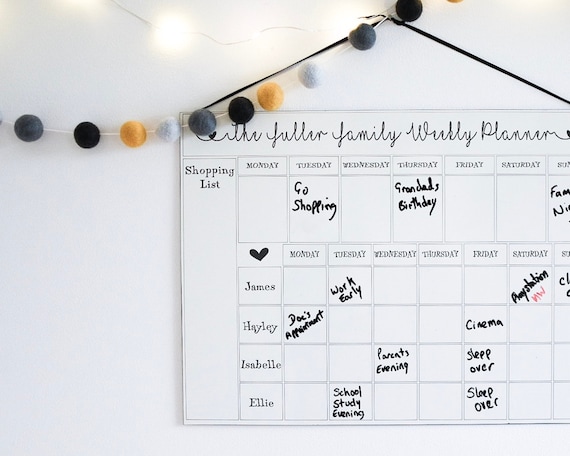 the Fuller Family Weekly Planner
Shopping
List
MONDAY TUESDAY WEDNESDAY THURSDAY FRIDAY SATURDAY SUN
Go
Shopping
Grandad's
Birthday
Fam
Ni
MONDAY TUESDAY WEDNESDAY THURSDAY FRIDAY SATURDAY
James
Work
Early
Playstation
Hayley
Doc's
Appointment
Cinema
Isabelle
Parents
Evening
Sleep
over
Ellie
School
Study
Evening
Sleep
over